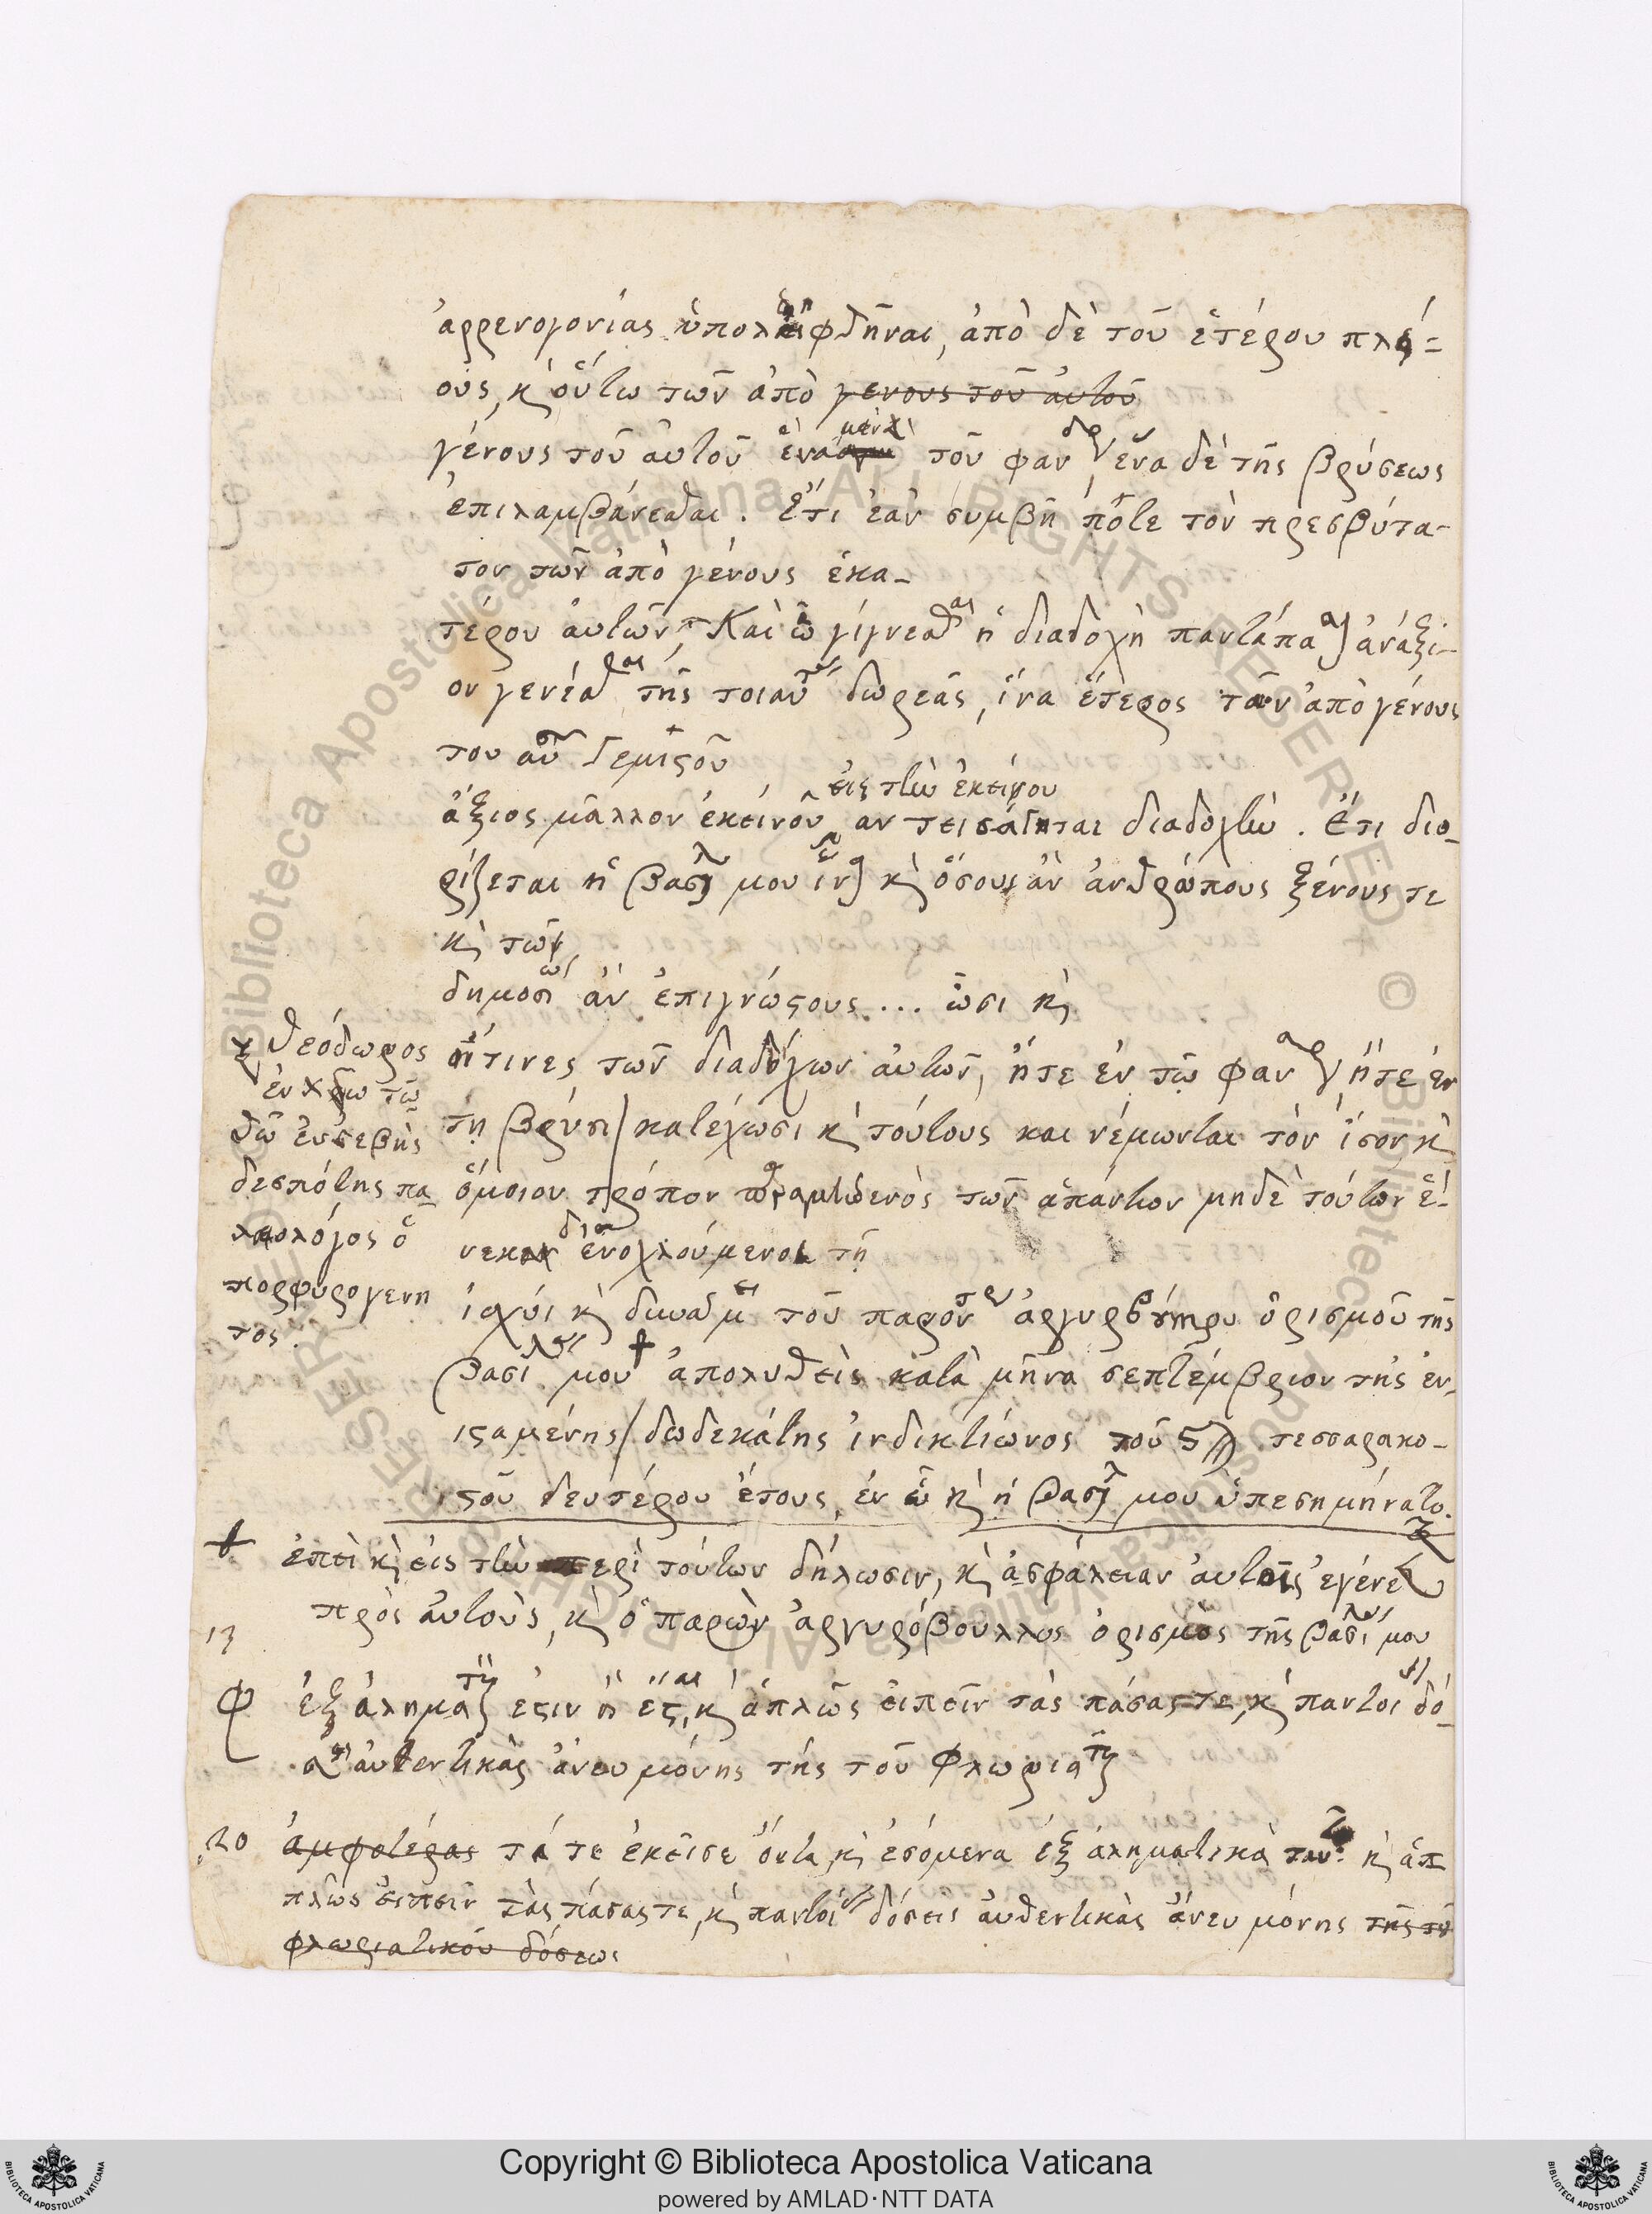 ἀρρενογονίας ὑπολειφθῆναι, ἀπὸ δὲ τοῦ ἑτέρου πλεί=
ους, κ οὕτω τῶν ἀπὸ γενους τοῦ αὐτοῦ
γένους τοῦ αὐτοῦ ἕνα μὲν τοῦ φαν, ἕνα δὲ τῆς βρύσεως
ἐπιλαμβάνεσθαι. Ἔτι ἐὰν συμβῇ πότε τὸν πρεσβύτα-
τον τῶν ἀπὸ γένους ἑκα-
τέρου αὐτῶν, Καὶ ὧ γίγνεσθαι ἡ διαδοχὴ παντάπασι ἀνάξι-
ον γενέσθαι τῆς τοιαύτης δωρεᾶς, ἵνα ἕτερος τῶν ἀπὸ γένους
του αὐτοῦ Γεμιστοῦ
εἰς τὴν ἐκείνου
ἄξιος μᾶλλον ἐκείνου αν τεισάγηται διαδοχὴν. Ἔτι διο-
ρίζεται ἡ βασιλ μου ἵν κ ὅσους ἂν ἀνθρώπους ξένους τε
κ τῶν
δημοσίω ἀν ἐπιγνώστους ... ὦσι κ
οἵτινες τῶν διαδόχων αὐτῶν, ἤτε ἐν τῷ φαν ἤτε ἐν
τῃ βρύσι κατέχωσι κ τούτους και νέμωνται τὸν ἴσον κ
ὅμοιον τρόπον παραμηδενὸς τῶν ἁπάντων μηδὲ τούτων ἕ-
νεκεν διενοχλούμενοι τῇ
ἰσχύι κ δυνάμει τοῦ παρόντος ἀργυροβούλλου ὁρισμοῦ τῆς
βασιλ μου ἀπολυθεὶς κατὰ μῆνα σεπτέμβριον τῆς ἐν-
ισταμένης δωδεκάτης ἰνδικτιώνος τοῦ ϛϡ τεσσαρακο-
στοῦ δευτέρου ἔτους, ἐν ὧ κ ἡ βασιλ μου ὑπεσημήνατο.
θεόδωρος
ἐν χῶ τῶ
θῶ ἐυσεβὴς
δεσπότης πα-
λαιολόγος ὁ
πορφυρογεννη
τος.
ἐπεὶ κ εἰς τὴν περὶ τούτων δήλωσιν, κ ἀσφάλειαν αὐτοῖς ἐγένετο
πρὸς αὐτοὺς, κ ὁ παρὼν ἀργυρόβουλλος ὁρισμὸς τῆς βασι μου
13
φ ἐξ ἀλημα ἐστιν ἢ ἔσται, κ ἁπλῶς εἰπεῖν τὰς πάσας τε, κ παντοί δό-
σεις αὐθεντικὰς ἄνευ μόνης τῆς τοῦ Φλωρια
20 ἀμφοτέρας τά τε ἐκεῖσε ὄντα, κ ἐσόμενα ἐξ ἀληματικὰ των κ ἁπ
πλῶς εἰπεῖν τὰς πάσας τε, κ παντοί δόσεις αὐθεντικὰς ἄνευ μόνης τῆς τοῦ
φλωριατικοῦ δόσεως
Copyright © Biblioteca Apostolica Vaticana
powered by AMLAD·NTT DATA